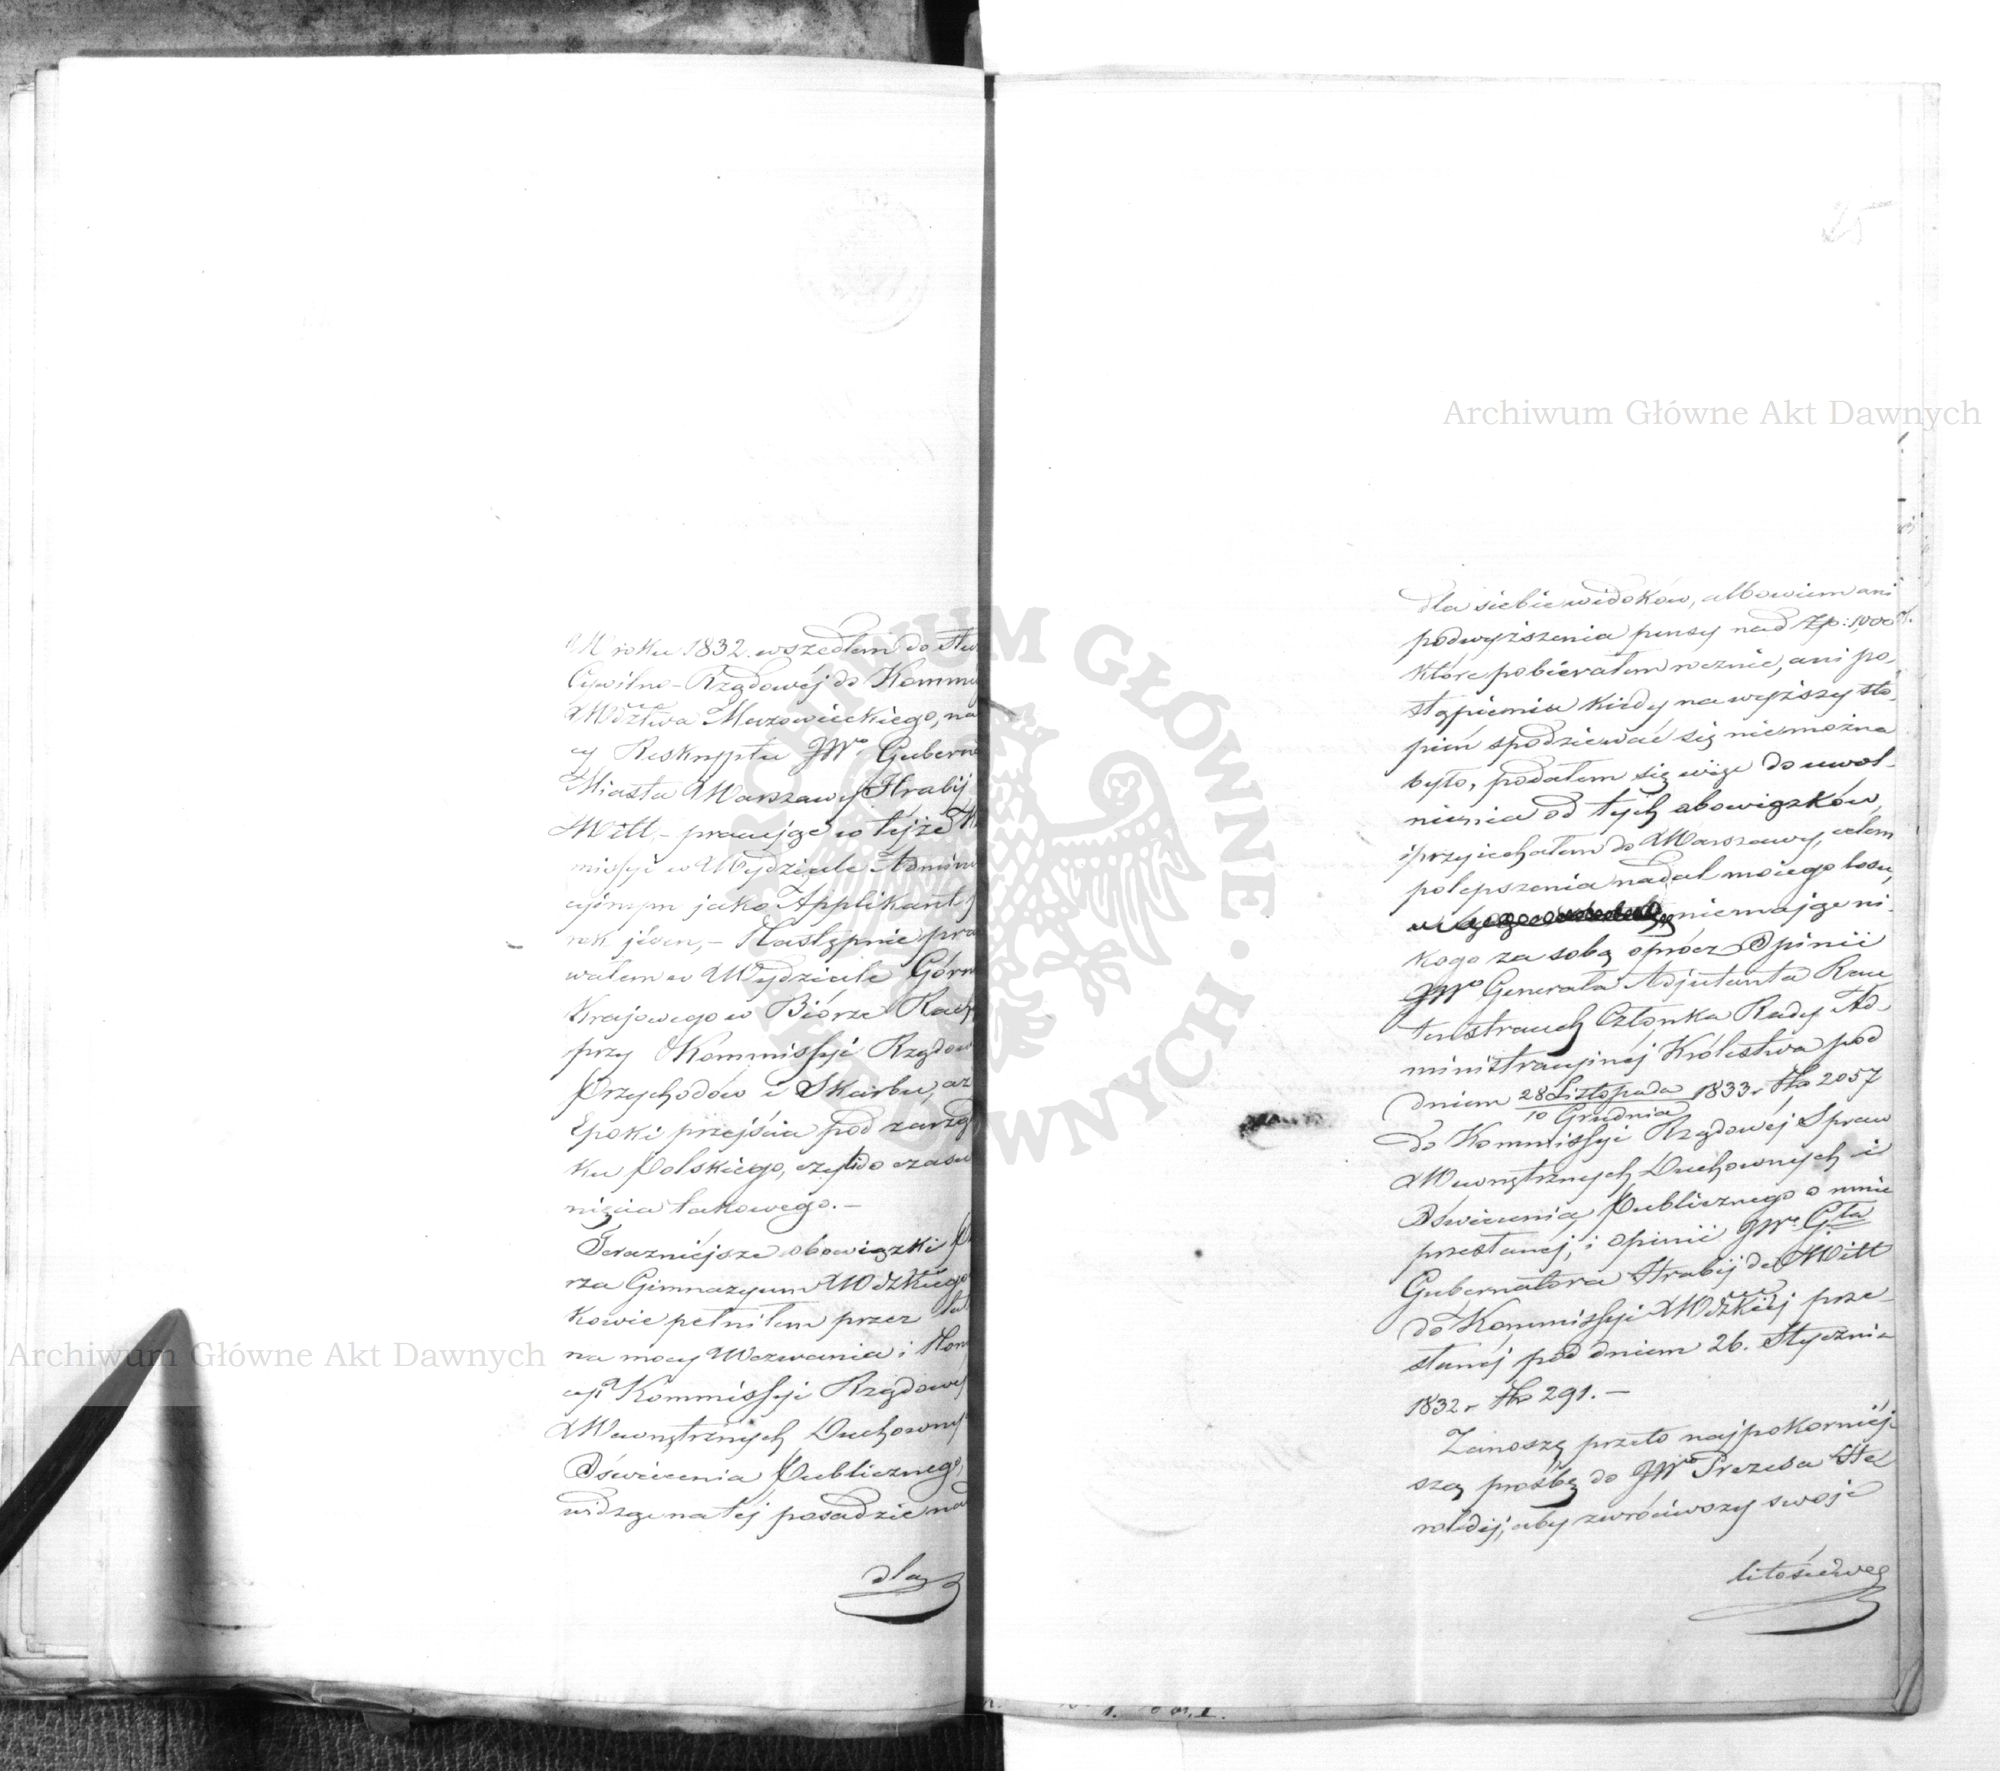 W roku 1832. wszedłem do słu
Cywilno-Rządowéj do Kommi
Wdztwa Mazowieckiego, na
cy Reskryptu JWo Guberna
Miasta Warszawy Hrabij
Witt, – pracując w tejże Ko
missyi w Wydziale Admini
cyinym jako Applikant p
rok jéden, – Następnie pra
wałem w Wydziale Górn
Krajowego w Biórze Rach
przy Kommissyi Rządow
Przychodów i Skarbu, aż
Epoki przejścia pod zarzą
ku Polskiego, czyli do czasu
nięcia takowego. –
Terazniéjsze obowiązki
rza Gimnazyum Wdzkiego
kowie pełniłem przez lat
na mocy Wezwania i Nom
cyi Kommissyi Rządowéj
Wewnętrznych Duchowny
Oświecenia Publicznego,
widząc na tej posadzie na
dla
25
dla siebie widoków, albowiem ani
podwyższenia pensy nad Zp: 1,000
które pobierałem rocznie, ani po,
stąpienia kiedy na wyższy sto,
pień spodziewać się niemożna
było, podałem się więc do uwol-
nienia od tych obowiązków,
i przyiechałem do Warszawy, celem
polepszenia nadal moiego losu,
niemając ni-
kogo za sobą oprócz Opinii
JWo Generała Adjutanta Rau
tenstrauch Członka Rady Ad-
ministracyinéj Królestwa pod
dniem 28 Listopada/10 Grudnia 1833 r No 2057
do Kommissyi Rządowéj Spraw
Wewnętrznych Duchownych i
Oświecenia Publicznego o mnie
przesłanéj, i opinii JWo Gła
Gubernatora Hrabij de Witt
do Kommissyi Wdzkiéj prze-
słanéj pod dniem 26. Stycznia
1832 r No 291. –
Zanoszę przeto najpokorniéj-
szą prośbę do JWo Prezesa He
roldij, aby zwróciwszy swoje
litościwe
Archiwum Główne Akt Dawnych
Archiwum Główne Akt Dawnych
ARCHIWUM GŁÓWNE AKT DAWNYCH